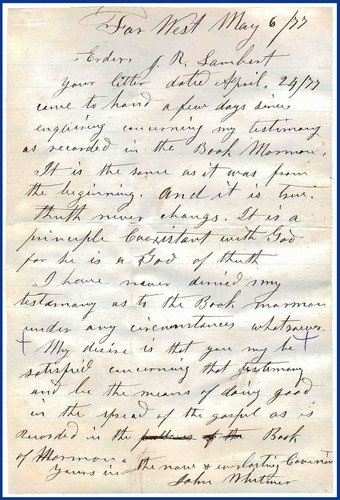 Far West May 6/77
Erder J. R. Lambert
Your litter dated April, 24/77
came to hand a few days since
enquiring concerning my testimony
as recorded in the Book Mormon,
It is the same as it was from
the beginning. And it is true.
thuth never change. It is a
principle Coexistant with God
for he is a God of thuth
I have never denied my
testamony as to the Book mormon
under any circumstances whatsoever.
† My desire is that you may be †
satisfied concerning that testimony
and be the means of doing good
in the spread of the gospel as is
recorded in the of the Book
of Mormon.
Yours in the now & everlasting Covenan
John Whitmer